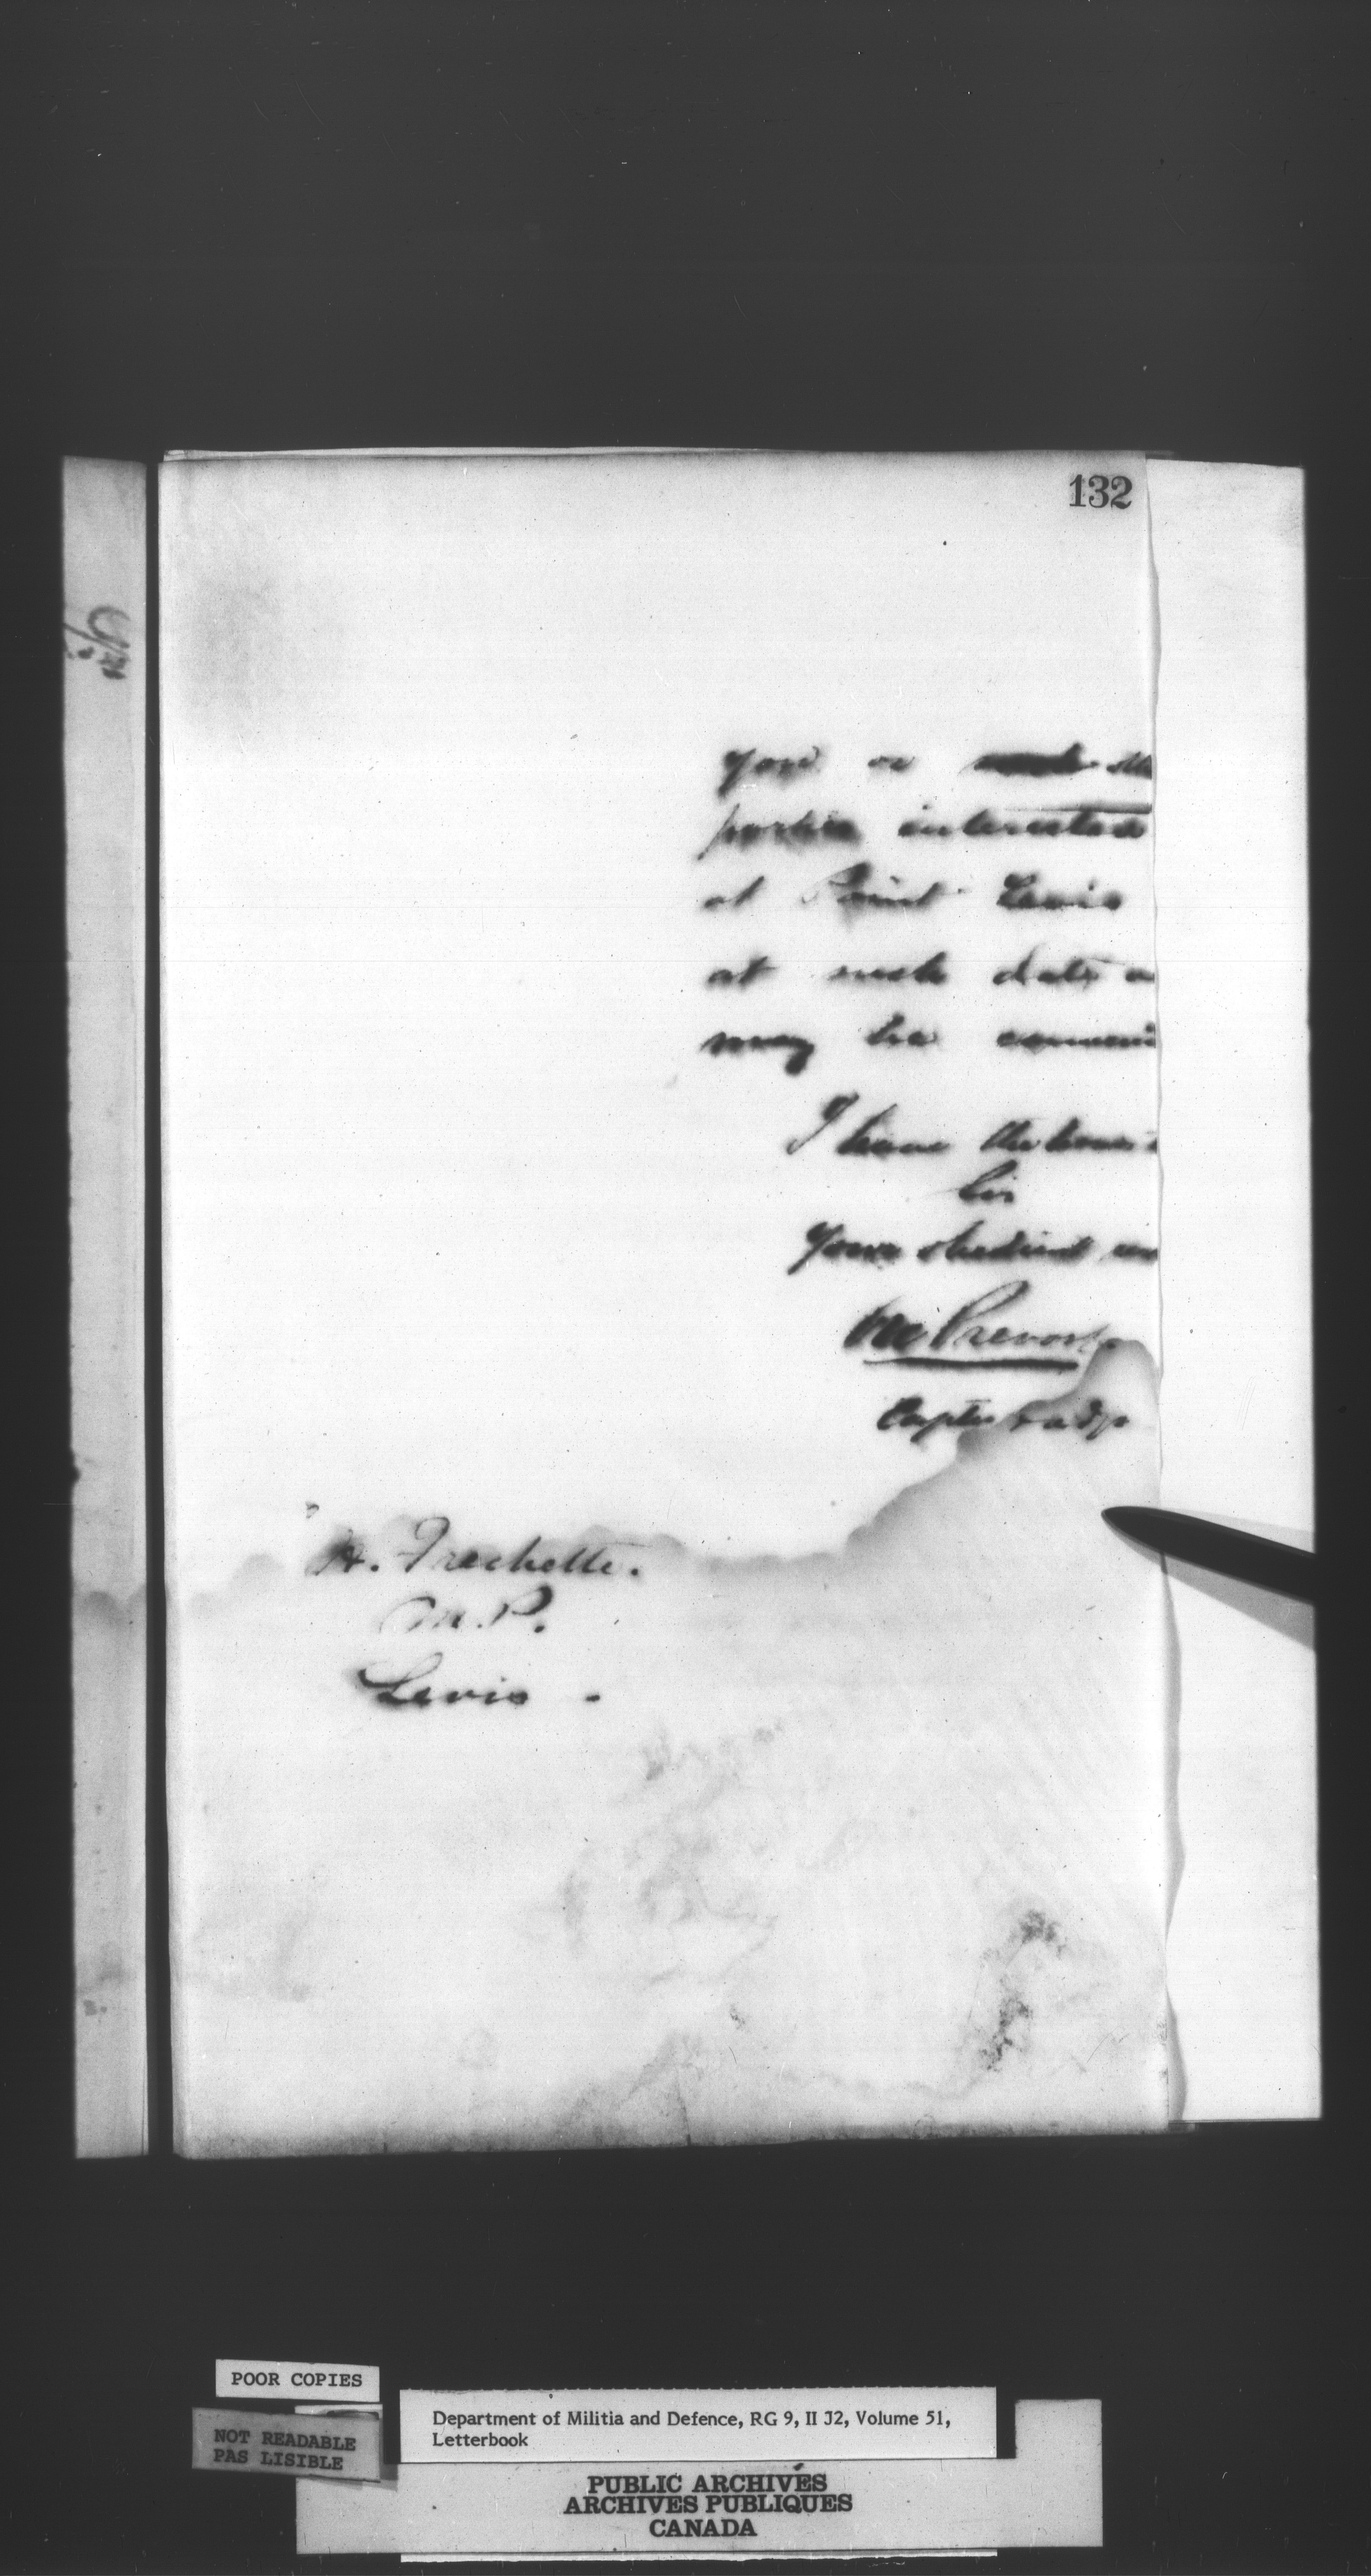 132
you or the
parties interested
at Point Levis
at such date
may be
I have the honor
Sir
Your obedient
Prevost
Captn & adjt
H. Frechette.
M.P.
Levis.
POOR COPIES
NOT READABLE
PAS LISIBLE
Department of Militia and Defence, RG 9, II J2, Volume 51,
Letterbook
PUBLIC ARCHIVES
ARCHIVES PUBLIQUES
CANADA